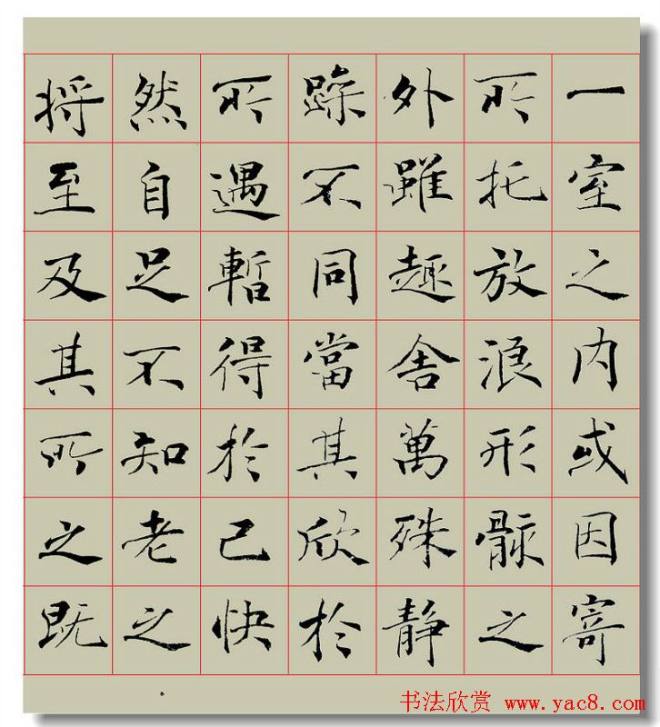 一室之内或因寄
所托放浪形骸之
外雖趣舎萬殊静
躁不同當其欣於
所遇暫得於己快
然自足不知老之
将至及其所之既
书法欣赏 www.yac8.com